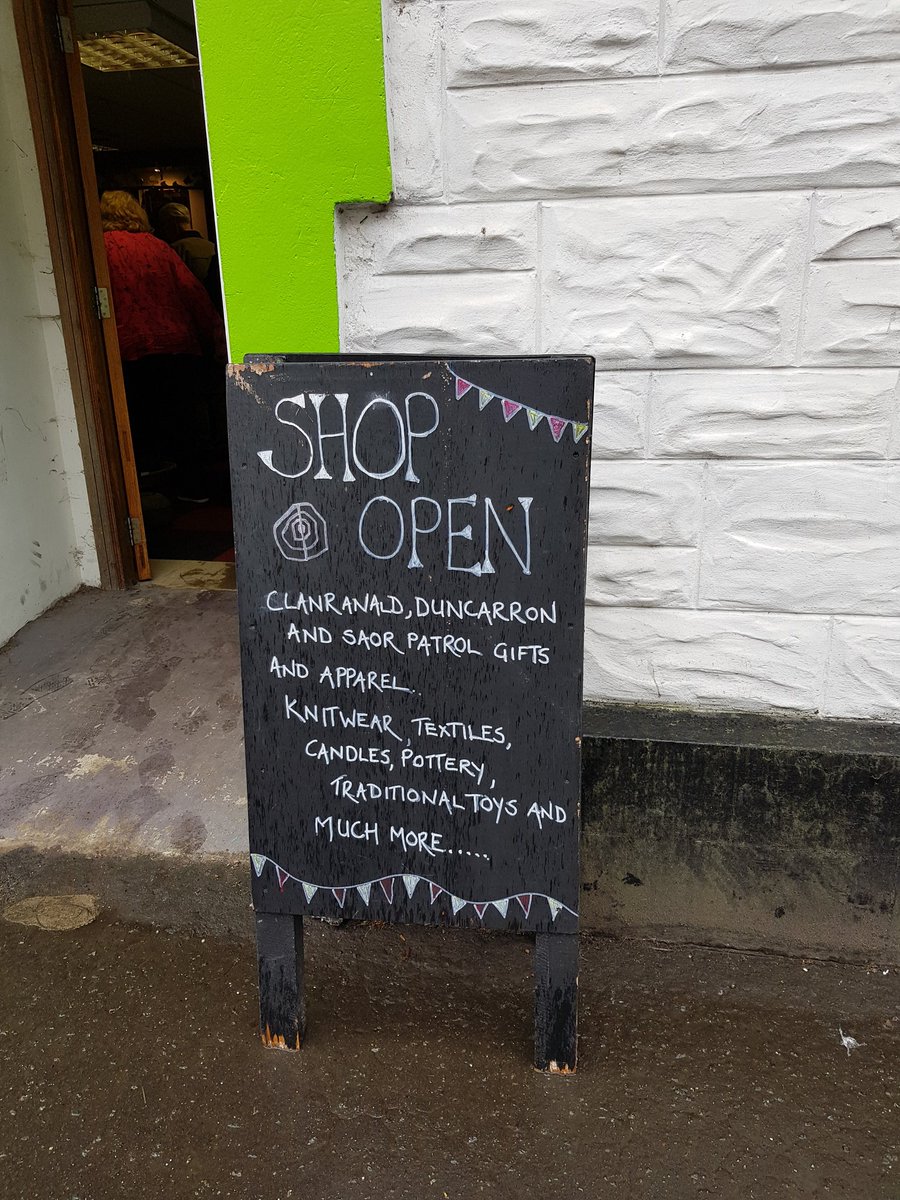 SHOP
OPEN
CLANRANALD, DUNCARRON
AND SAOR PATROL GIFTS
AND APPAREL..
KNITWEAR, TEXTILES,
CANDLES, POTTERY,
TRADITIONAL TOYS AND
MUCH MORE.....